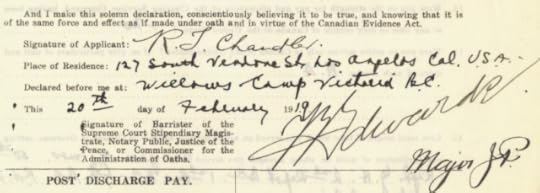 And I make this solemn declaration, conscientiously believing it to be true, and knowing that it is
of the same force and effect as if made under oath and in virtue of the Canadian Evidence Act.
Signature of Applicant: R. T. Chandler.
Place of Residence: 127 South Vendome St. Los Angelos Cal. USA.
Declared before me at: Willows Camp Victoria B.C.
This 20th day of February 1919
Signature of Barrister of the
Supreme Court Stipendiary Magis-
trate, Notary Public, Justice of the
Peace, or Commissioner for the
Administration of Oaths.
Edwards
Major J.P.
POST DISCHARGE PAY.